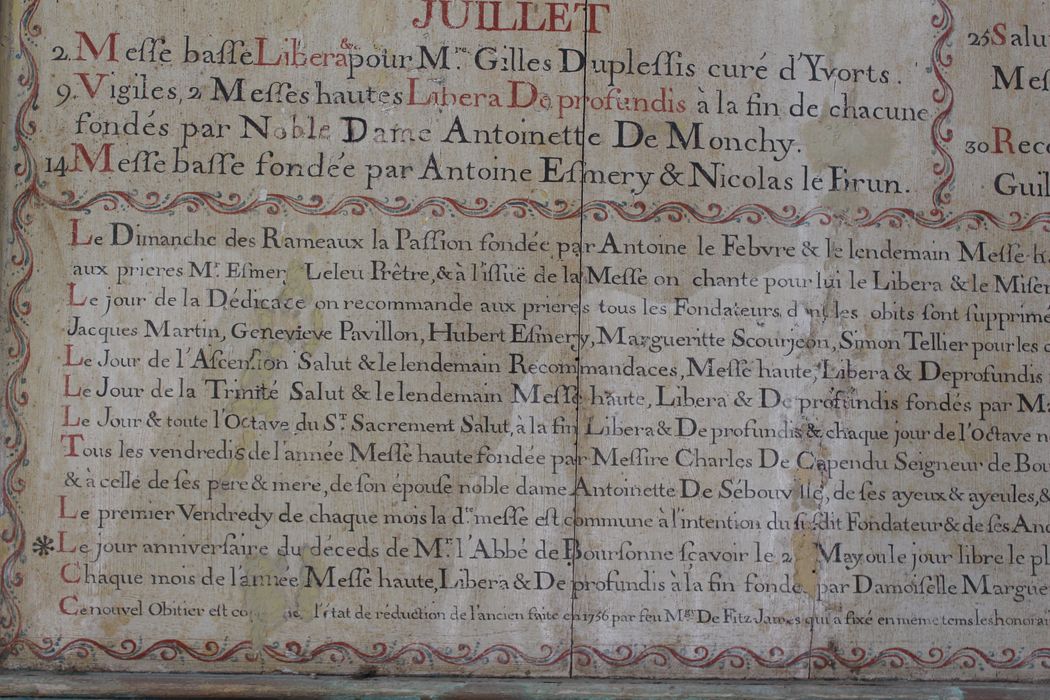 JUILLET
2. Messe basse Libera &c. pour Mre. Gilles Duplessis curé d'Yvorts.
9. Vigiles, 2 Messes hautes Libera De profundis à la fin de chacune
fondés par Noble Dame Antoinette De Monchy.
14. Messe basse fondée par Antoine Esmery & Nicolas le Brun.
25 Salu
Mes
30 Reco
Guil
Le Dimanche des Rameaux la Passion fondée par Antoine le Febvre & le lendemain Messe h.
aux prieres Mr. Esmery Leleu Prêtre, & à l'issuë de la Messe on chante pour lui le Libera & le Miser
Le jour de la Dédicace on recommande aux prieres tous les Fondateurs, dont les obits sont supprimé
Jacques Martin, Genevieve Pavillon, Hubert Esmery, Margueritte Scourjeon, Simon Tellier pour les
Le Jour de l'Ascension Salut & le lendemain Recommandaces, Messe haute, Libera & Deprofundis
Le Jour de la Trinité Salut & le lendemain Messe haute, Libera & De profundis fondés par Ma
Le Jour & toute l'Octave du St. Sacrement Salut, à la fin Libera & De profundis & chaque jour de l'Octave n
Tous les vendredis de l'année Messe haute fondée par Messire Charles De Capendu Seigneur de Bou
& à celle de ses pere & mere, de son épouse noble dame Antoinette De Sébouville, de ses ayeux & ayeules, &
Le premier Vendredy de chaque mois la dte. messe est commune à l'intention du susdit Fondateur & de ses Anc
*Le jour anniversaire du déceds de Mr. l'Abbé de Boursonne sçavoir le 2 May ou le jour libre le pl
Chaque mois de l'année Messe haute, Libera & De profundis à la fin fondée par Damoiselle Margue
Ce nouvel Obitier est l'état de réduction de l'ancien faite en 1756 par feu Mgr. De Fitz James qui a fixé en même tems les honorai